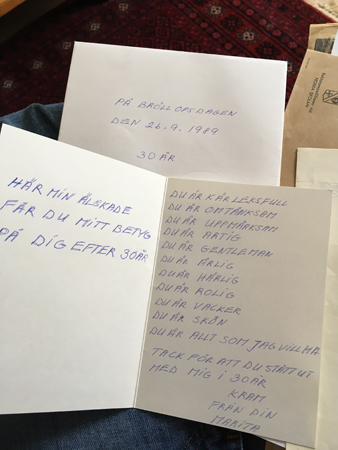 PÅ BRÖLLOPSDAGEN
DEN 26.9. 1989
30 ÅR
HÄR MIN ÄLSKADE
FÅR DU MITT BETYG
PÅ DIG EFTER 30 ÅR
DU ÄR KÄRLEKSFULL
DU ÄR OMTÄNKSAM
DU ÄR UPPMÄRKSAM
DU ÄR ARTIG
DU ÄR GENTLEMAN
DU ÄR ÄRLIG
DU ÄR HÄRLIG
DU ÄR ROLIG
DU ÄR VACKER
DU ÄR SKÖN
DU ÄR ALLT SOM JAG VILL HA
TACK FÖR ATT DU STÅTT UT
MED MIG I 30 ÅR
KRAM
FRÅN DIN
MARITA